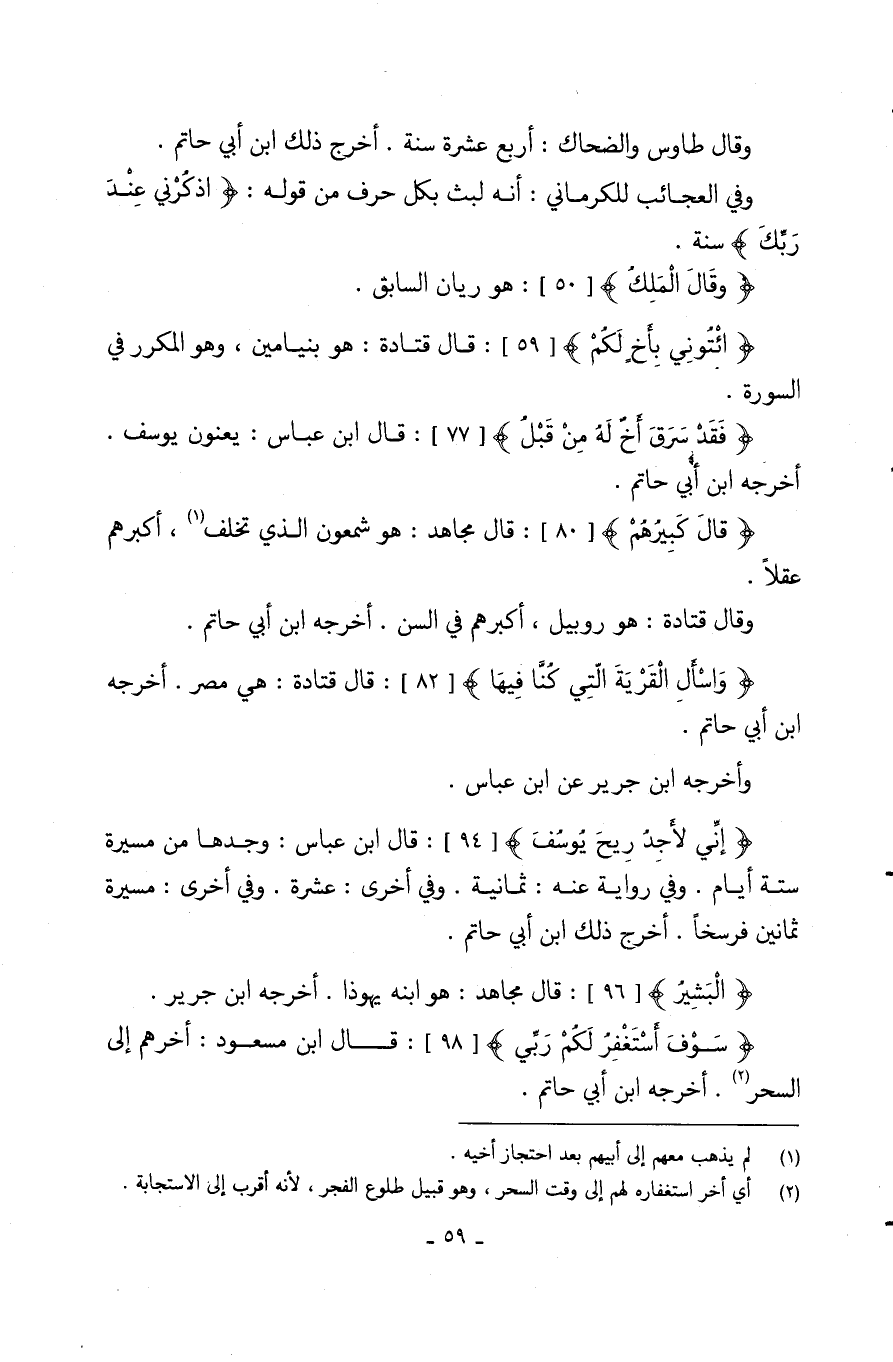 وقال طاوس والضحاك : أربع عشرة سنة . أخرج ذلك ابن أبي حاتم .
وفي العجـائب للكرمـاني : أنـه لبث بكل حرف من قولـه : ﴿ اذكُرْني عِنْـدَ
رَبِّكَ ﴾ سنة .
﴿ وقَالَ الْمَلِكُ ﴾ [ ٥٠ ] : هو ريان السابق .
﴿ ائْتُوني بِأَخٍ لَكُمْ ﴾ [ ٥٩ ] : قـال قتـادة : هو بنيـامين ، وهو المكرر في
السورة .
﴿ فَقَدْ سَرَقَ أَخٌ لَهُ مِنْ قَبْلُ ﴾ [ ٧٧ ] : قـال ابن عبـاس : يعنون يوسف .
أخرجه ابن أبي حاتم .
﴿ قالَ كَبِيرُهُمْ ﴾ [ ٨٠ ] : قال مجاهد : هو شمعون الـذي تخلف(١) ، أكبرهم
عقلاً .
وقال قتادة : هو روبيل ، أكبرهم في السن . أخرجه ابن أبي حاتم .
﴿ وَاسْأَلِ الْقَرْيَةَ الّتِي كُنَّا فِيهَا ﴾ [ ٨٢ ] : قال قتادة : هي مصر . أخرجه
ابن أبي حاتم .
وأخرجه ابن جرير عن ابن عباس .
﴿ إنِّي لأَجِدُ رِيحَ يُوسُفَ ﴾ [ ٩٤ ] : قال ابن عباس : وجـدهـا من مسيرة
ستـة أيـام . وفي روايـة عنـه : ثمـانيـة . وفي أخرى : عشرة . وفي أخرى : مسيرة
ثمانين فرسخاً . أخرج ذلك ابن أبي حاتم .
﴿ الْبَشِيرُ ﴾ [ ٩٦ ] : قال مجاهد : هو ابنه يهوذا . أخرجه ابن جرير .
﴿ سَـوْفَ أَسْتَغْفِرُ لَكُمْ رَبِّي ﴾ [ ٩٨ ] : قـــال ابن مسعـود : أخرهم إلى
السحر(٢) . أخرجه ابن أبي حاتم .
(١) لم يذهب معهم إلى أبيهم بعد احتجاز أخيه .
(٢) أي أخر استغفاره لهم إلى وقت السحر ، وهو قبيل طلوع الفجر ، لأنه أقرب إلى الاستجابة .
ـ ٥٩ ـ